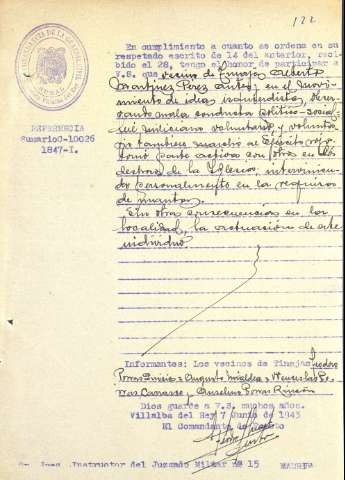 122
En cumplimiento a cuanto se ordena en su
respetado escrito de 14 del anterior, reci-
bido el 28, tengo el honor de participar a
V.S. que vecino de Tinajas Alberto
Martinez Perez antes en el movi-
miento de idea izquierdista, obser-
vando mala conducta politico-social,
fué miliciano voluntario y volunta-
rio tambien marchó al Ejército
tomó parte activa con otros en la
destroza de la Iglesia, intervinien-
do personalmente en la requisa
de mantas.
Sin otras consecuencias en la
localidad, la actuación de este
individuo.
REFERENCIA
Sumario-10026
1847-I.
Informantes: Los vecinos de Tinajas Isidoro
Porras Augusto y Wenceslao
y Aurelio Porras Rincón
Dios guarde a V.S. muchos años.
Villalba del Rey 7 Junio de 1943
El Comandante de Puesto
Sr. Juez Instructor del Juzgado Militar nº 15 MADRID